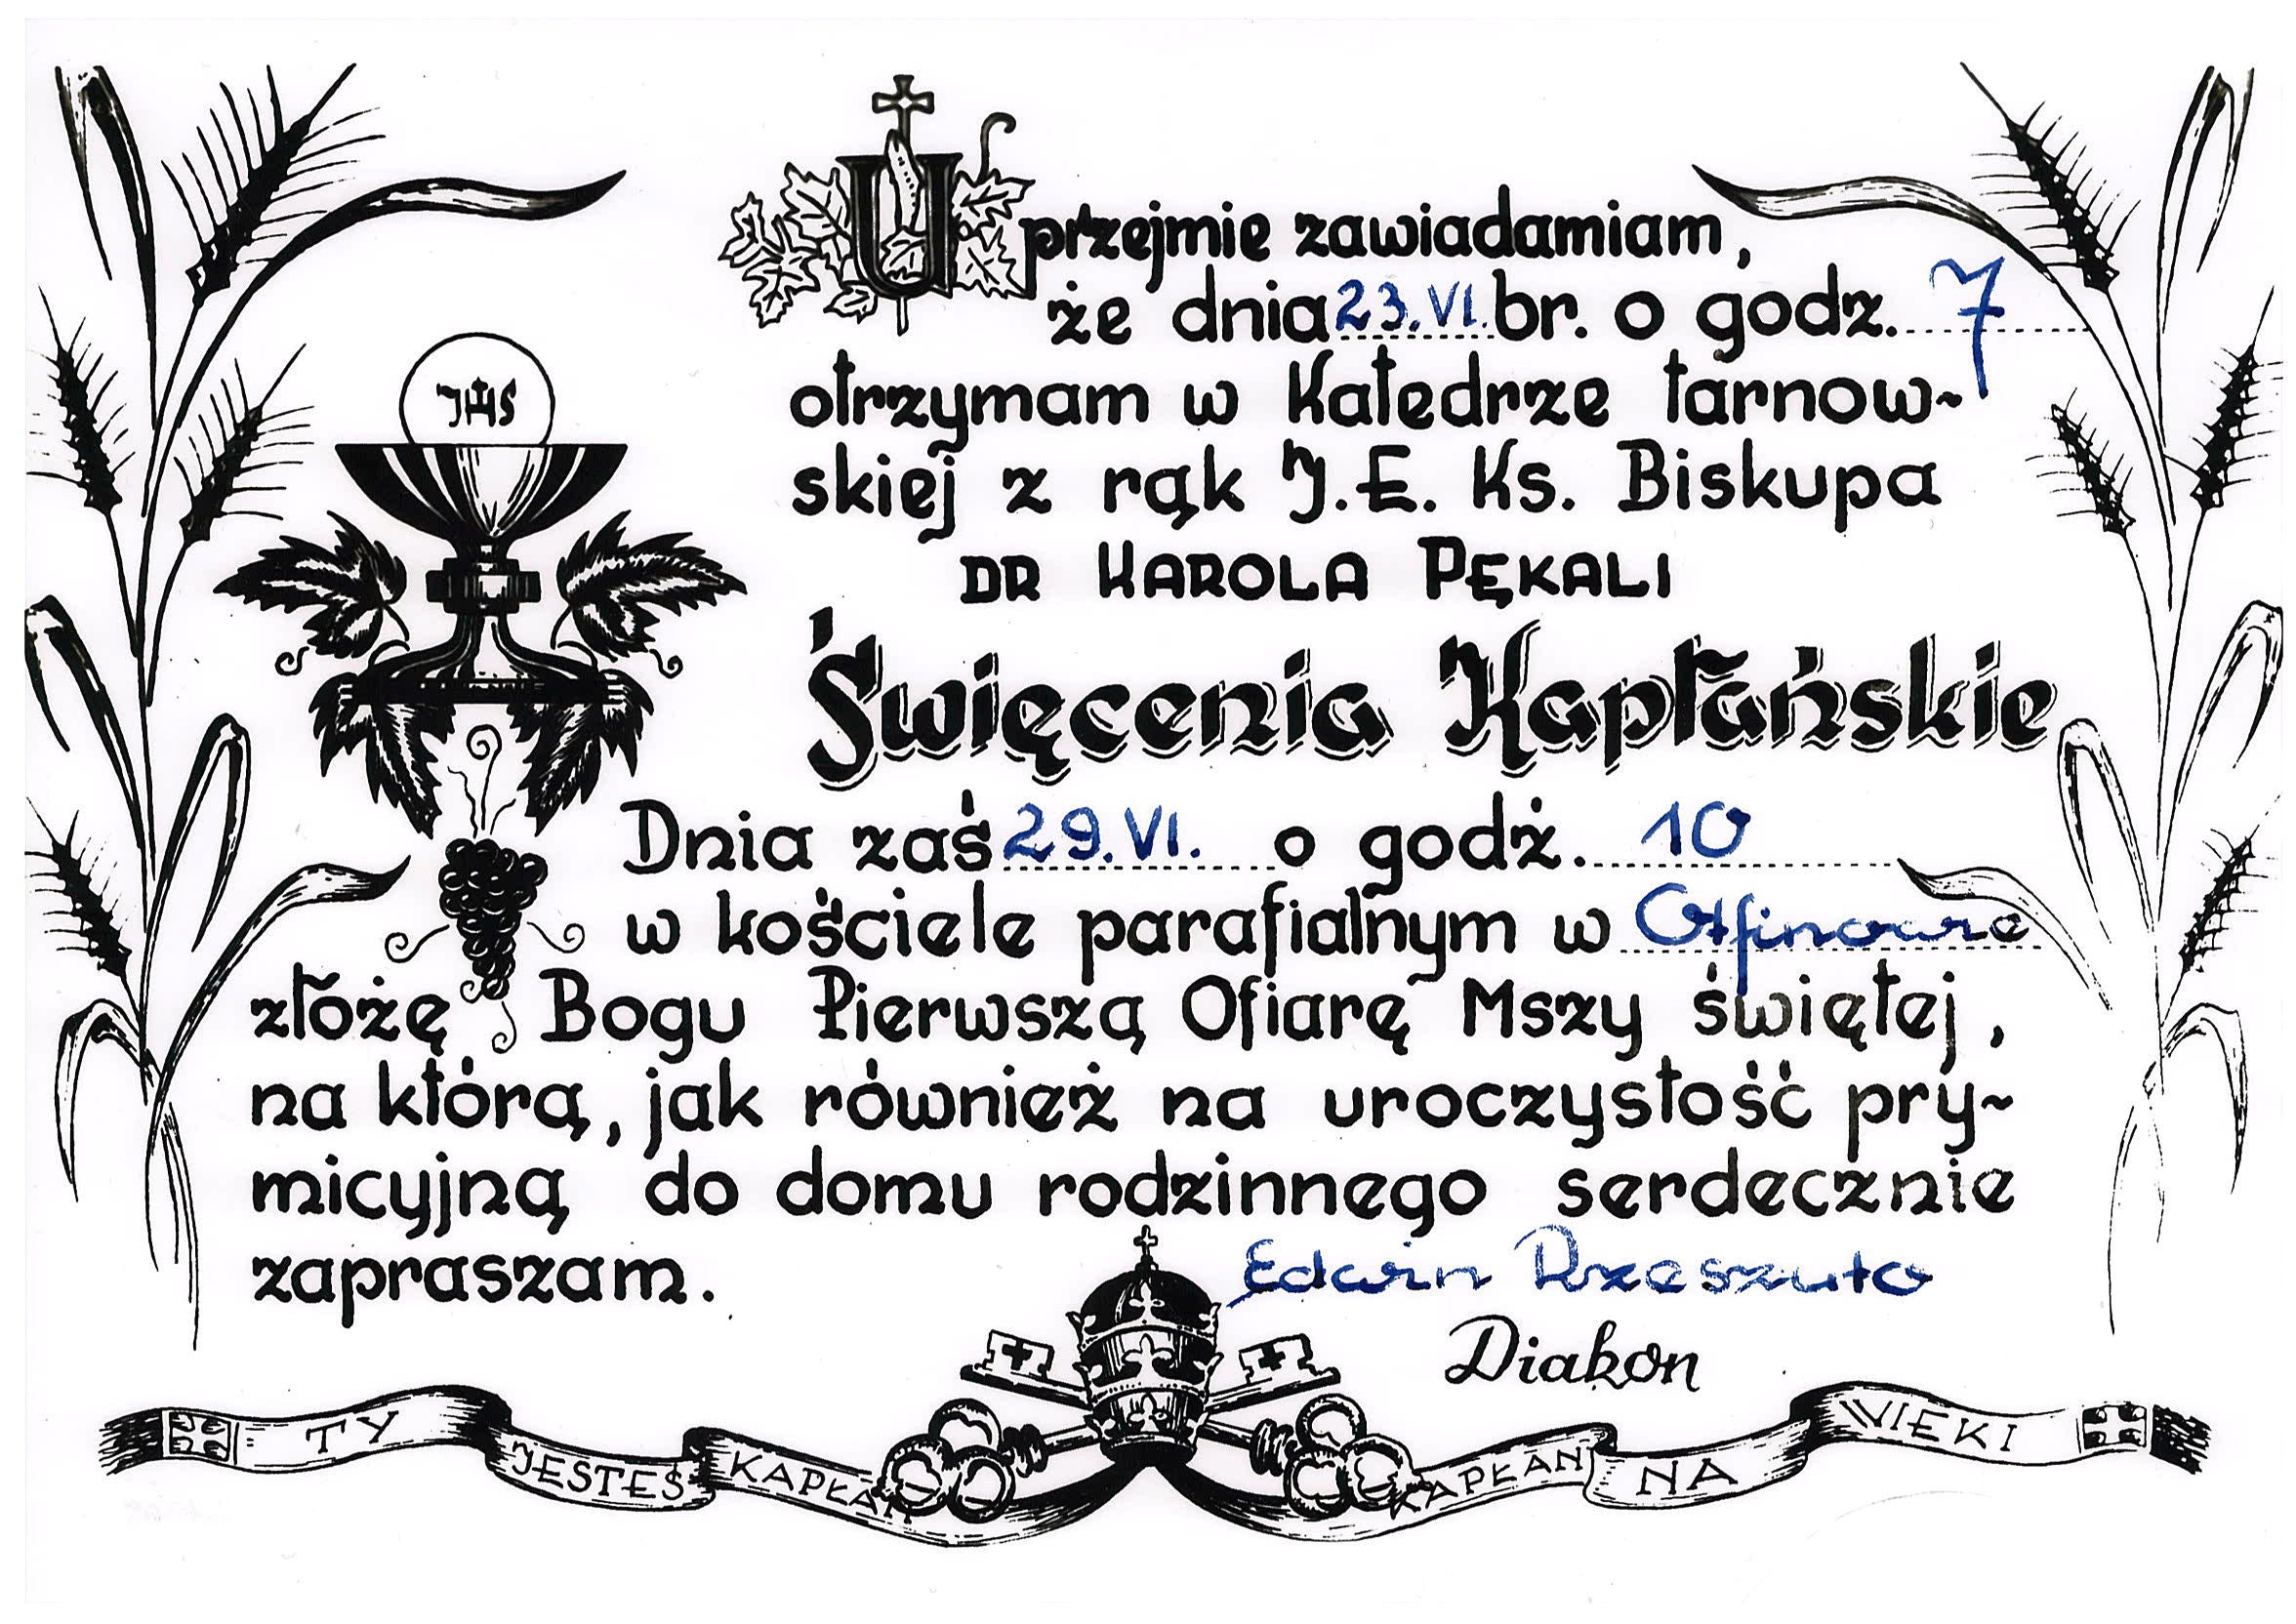 Uprzejmie zawiadamiam,
że dnia 23. VI. br. o godz. 7
otrzymam w Katedrze tarnow~
skiej z rąk J.E. Ks. Biskupa
DR KAROLA PĘKALI
Święcenia Kapłańskie
Dnia zaś 29. VI. o godż. 10
w kościele parafialnym w Otfinowie
złożę Bogu Pierwszą Ofiarę Mszy świętej,
na którą, jak również na uroczystość pry~
micyjną do domu rodzinnego serdecznie
zapraszam.
Edwin Rzeszuto
Diakon
JHS
TY JESTEŚ KAPŁAN KAPŁAN NA WIEKI